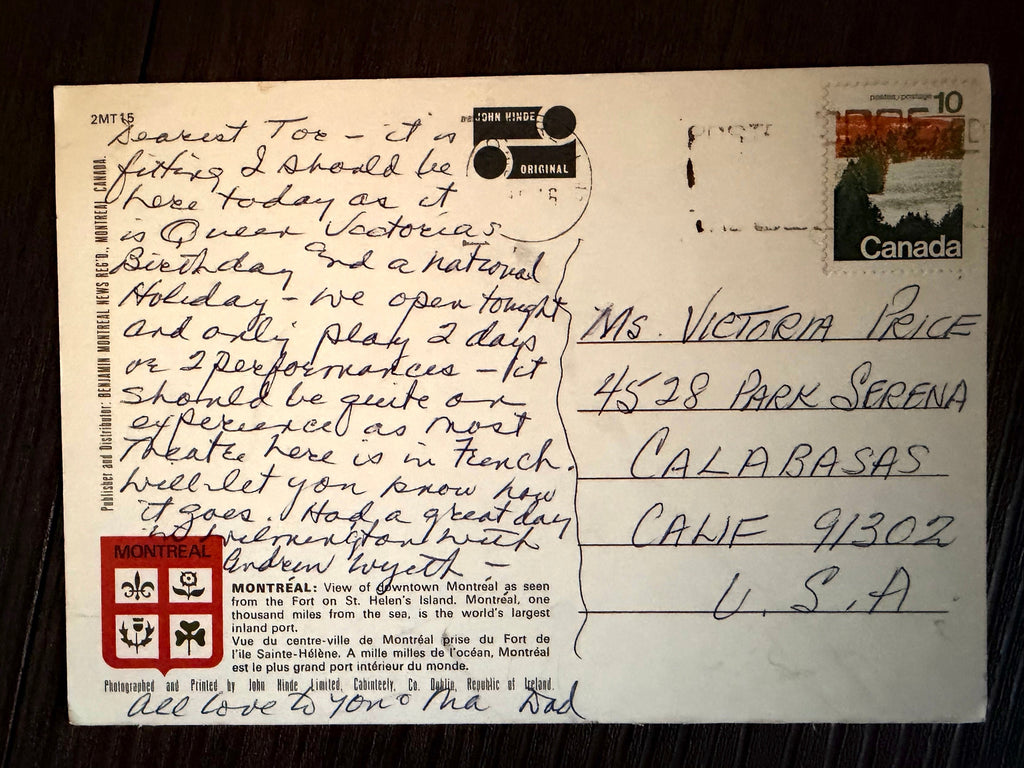 2MT15
Dearest Tor – it is
fitting I should be
here today as it
is Queen Victorias
Birthday and a national
Holiday – we open tonight
and only play 2 days
or 2 performances – It
should be quite an
experience as most
Theatre here is in French.
Will let you know how
it goes. Had a great day
in Wilmington with
Andrew Wyeth –
All love to you & Ma Dad
Publisher and Distributor: BENJAMIN MONTREAL NEWS REG'D., MONTREAL, CANADA.
JOHN HINDE
ORIGINAL
postes/postage 10
Canada
Ms. VICTORIA PRICE
4528 PARK SERENA
CALABASAS
CALIF 91302
U.S.A
MONTREAL
MONTRÉAL: View of downtown Montréal as seen
from the Fort on St. Helen's Island. Montréal, one
thousand miles from the sea, is the world's largest
inland port.
Vue du centre-ville de Montréal prise du Fort de
l'île Sainte-Hélène. A mille milles de l'océan, Montréal
est le plus grand port intérieur du monde.
Photographed and Printed by John Hinde Limited, Cabinteely, Co. Dublin, Republic of Ireland.